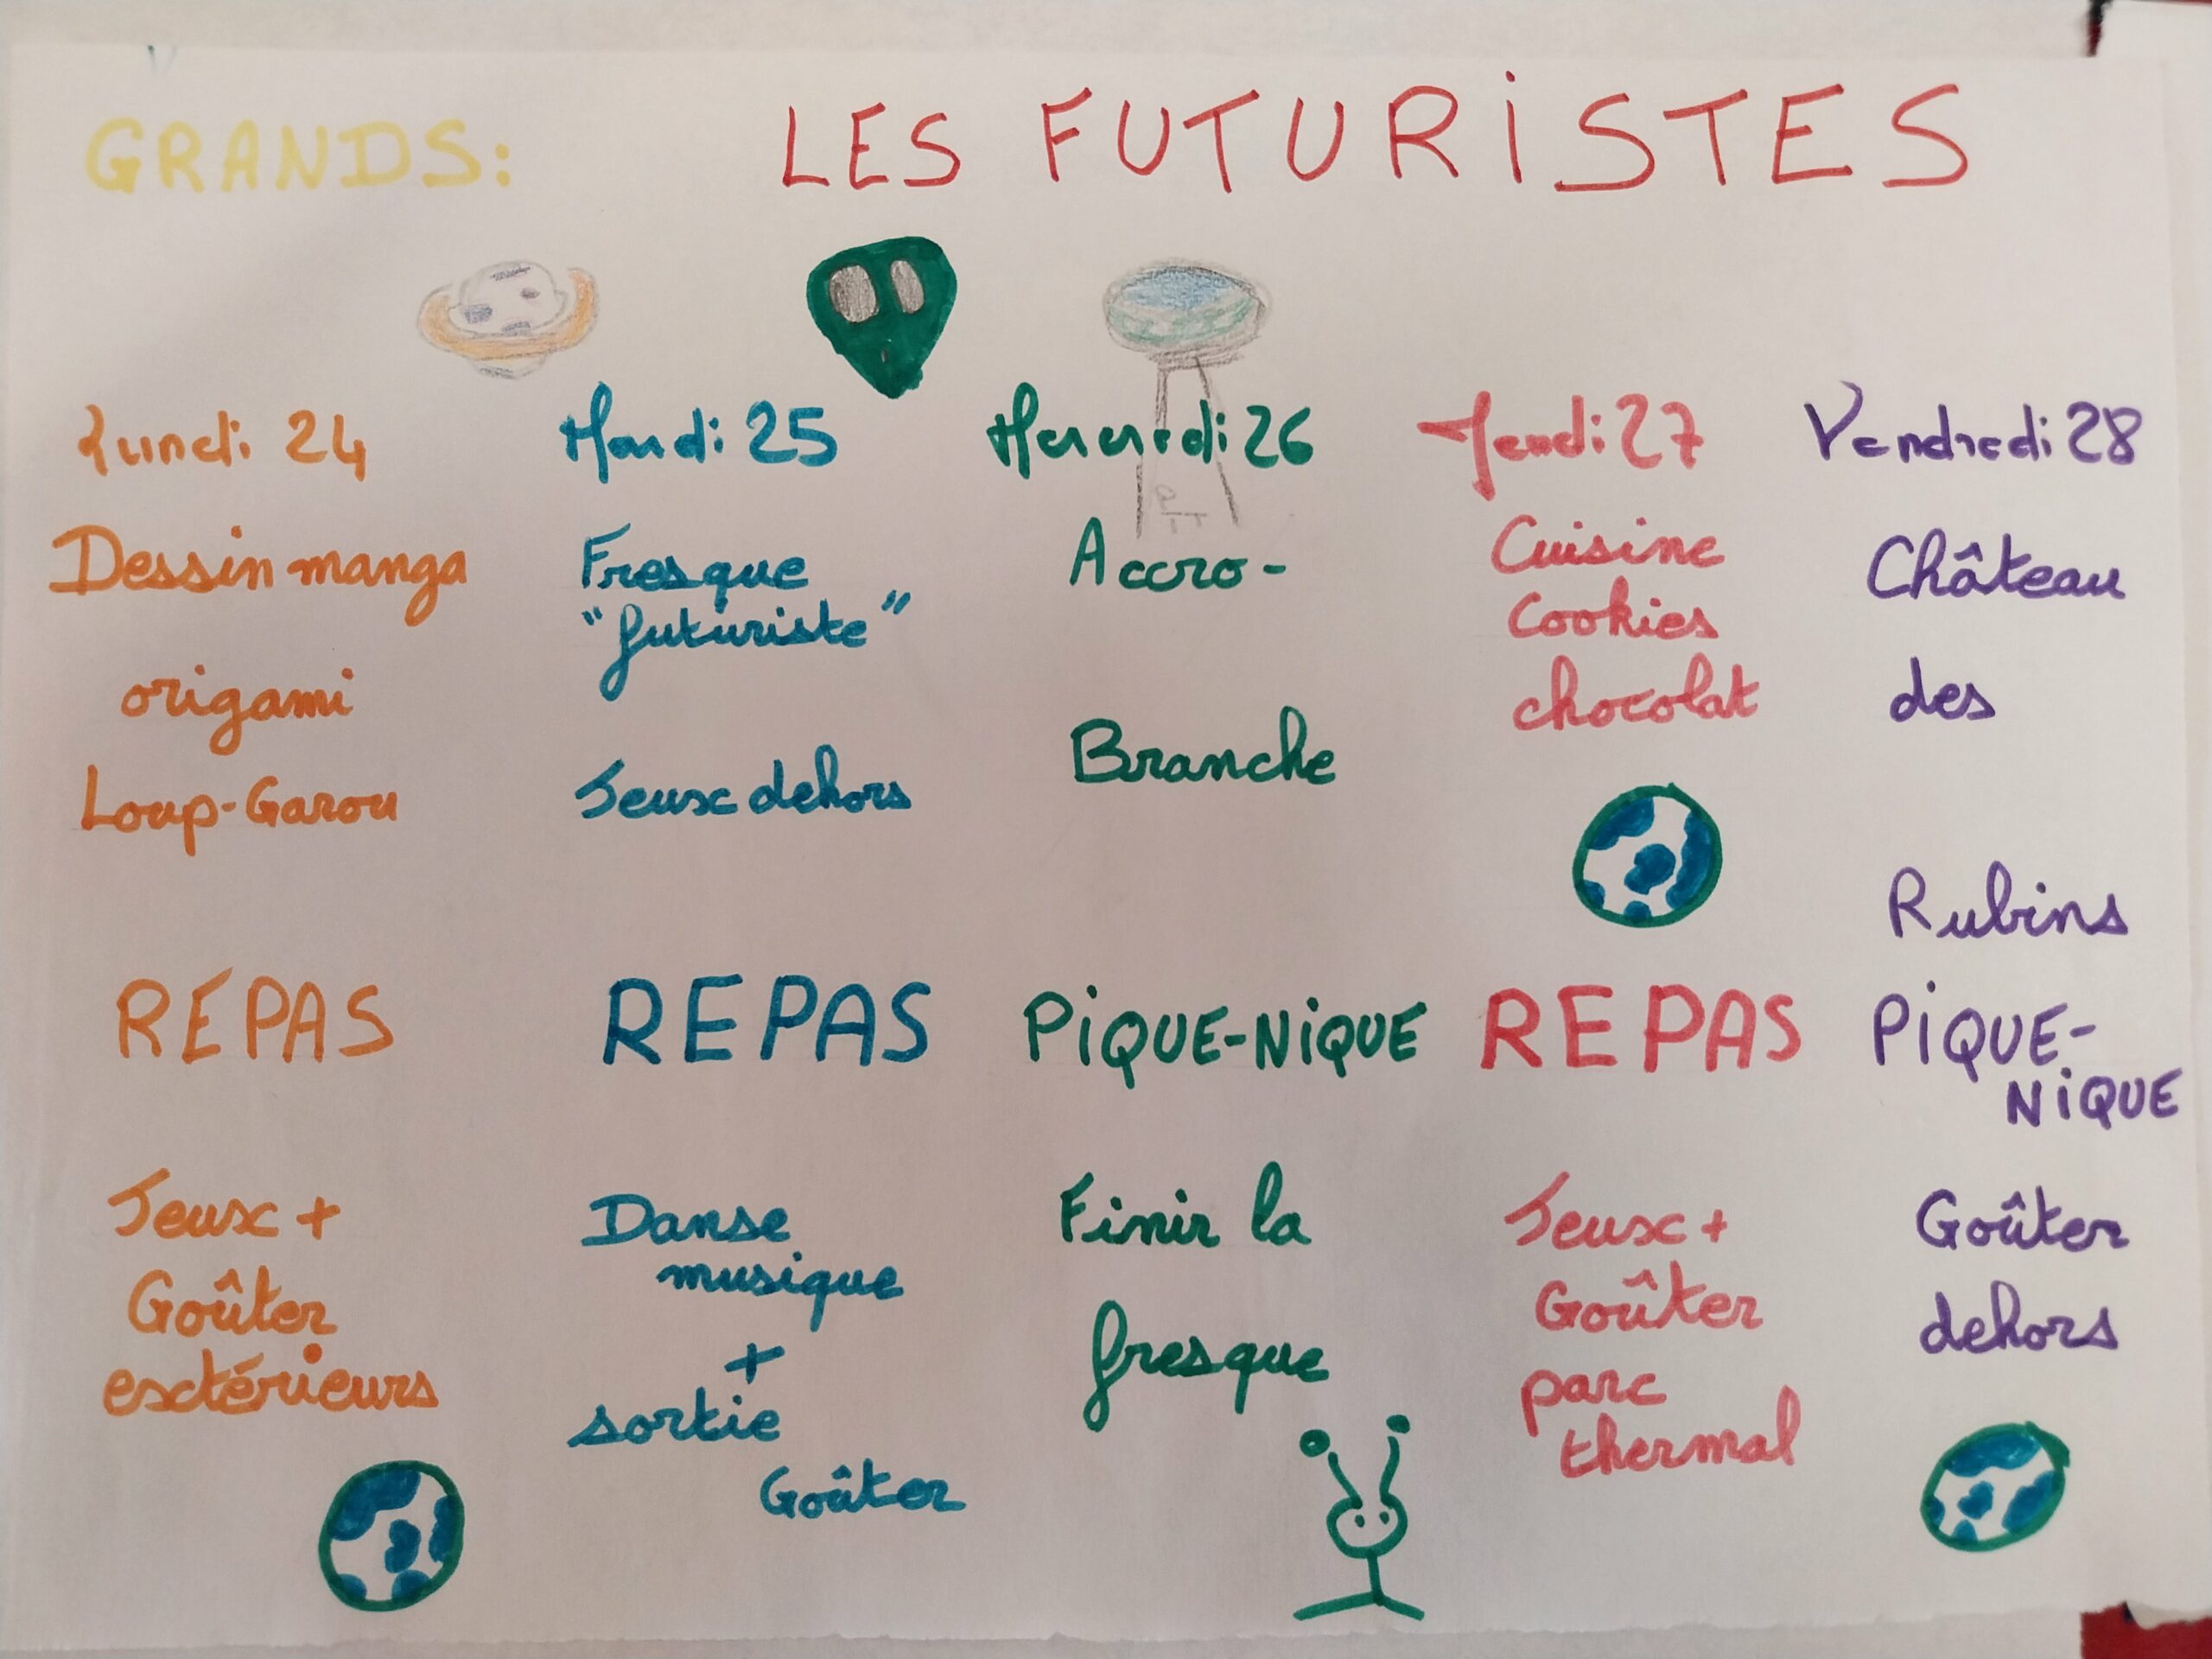 GRANDS: LES FUTURiSTES
Lundi 24
Dessin manga
origami
Loup-Garou
REPAS
Jeux +
Goûter
extérieurs
Mardi 25
Fresque
"futuriste"
Jeux dehors
REPAS
Danse
musique
+
sortie
Goûter
Mercredi 26
Accro-
Branche
PiQUE-NiQUE
Finir la
fresque
Jeudi 27
Cuisine
Cookies
chocolat
REPAS
Jeux +
Goûter
parc
thermal
Vendredi 28
Château
des
Rubins
PiQUE-
NiQUE
Goûter
dehors